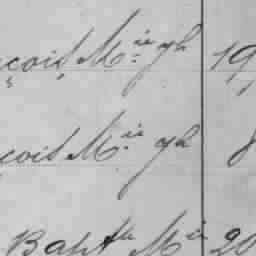 çois M.ie gh 19
çois M.ie gh 8
Bapt.te M.ie 20